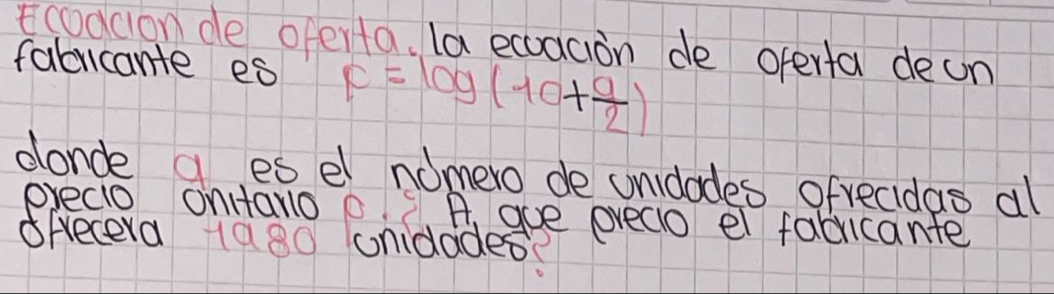 Ecuación de oferta. la ecuación de oferta de un
fabricante es p = log (10 + q/2)
donde q es el número de unidades ofrecidas al
precio unitario p. ¿ A que precio el fabricante
ofrecera 1980 unidades?